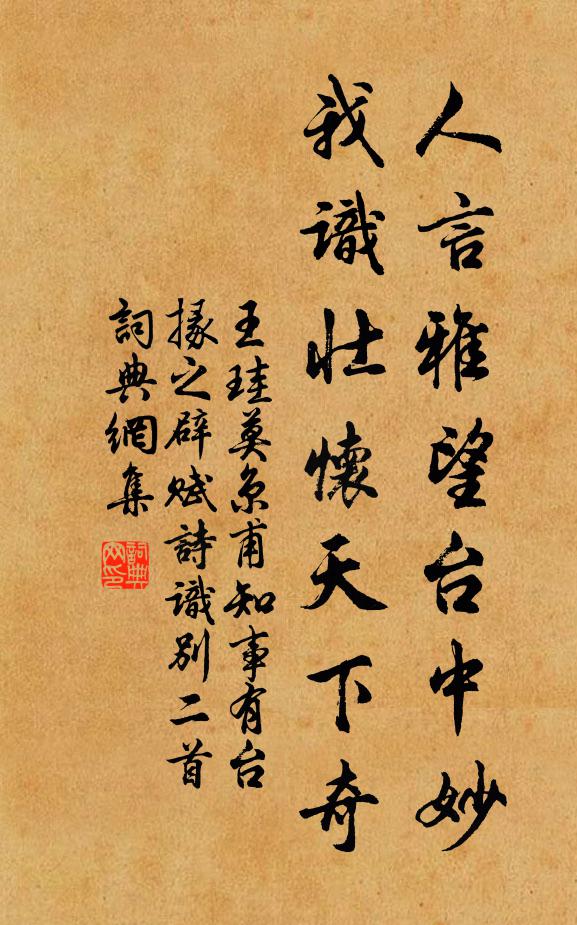 人言雅望台中妙
我識壯懷天下奇
王珪莫京甫知事有台
掾之辟賦詩識别二首
詞典網集
詞典網印